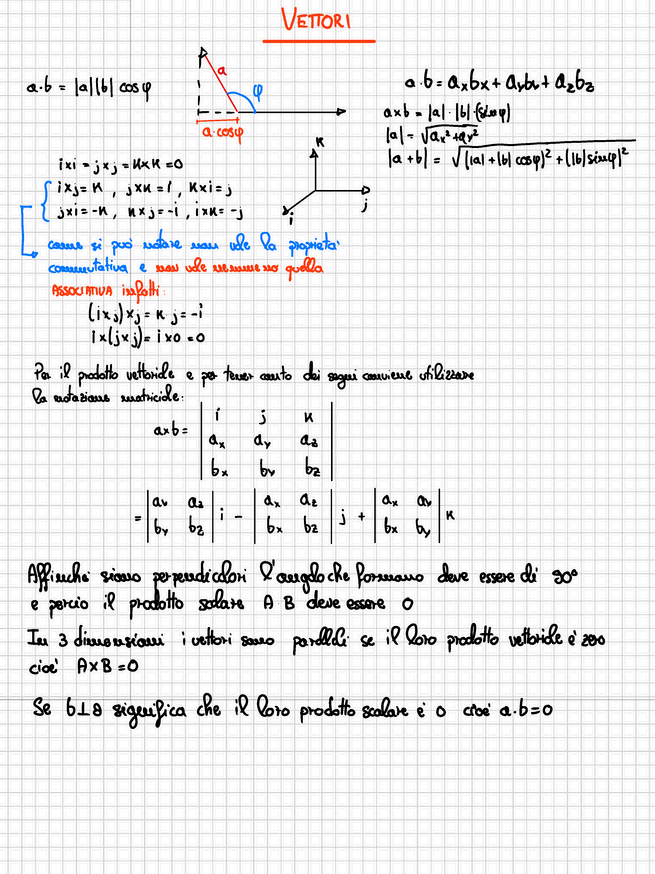 VETTORI
a·b = |a||b| cosφ
a
φ
a·cosφ
a·b = axbx + ayby + azbz
a×b = |a|·|b|·(sinφ)
|a| = √ax²+ay²
|a+b| = √(|a|+|b| cosφ)² + (|b|sinφ)²
k
j
i
i×i = j×j = k×k = 0
i×j = k , j×k = i , k×i = j
j×i = -k , k×j = -i , i×k = -j
come si può notare non vale la proprietà
commutativa e non vale nemmeno quella
ASSOCIATIVA infatti:
(i×j)×j = k j = -i
i×(j×j) = i×0 = 0
Per il prodotto vettoriale e per tener conto dei segni conviene utilizzare
la notazione matriciale:
a×b = | i j k |
| ax ay az |
| bx by bz |
= | ay az | i - | ax az | j + | ax ay | k
| by bz | | bx bz | | bx by |
Affinché siano perpendicolari l'angolo che formano deve essere di 90°
e perciò il prodotto scalare A B deve essere 0
In 3 dimensioni i vettori sono paralleli se il loro prodotto vettoriale è zero
cioè A×B = 0
Se b⊥a significa che il loro prodotto scalare è 0 cioè a·b = 0